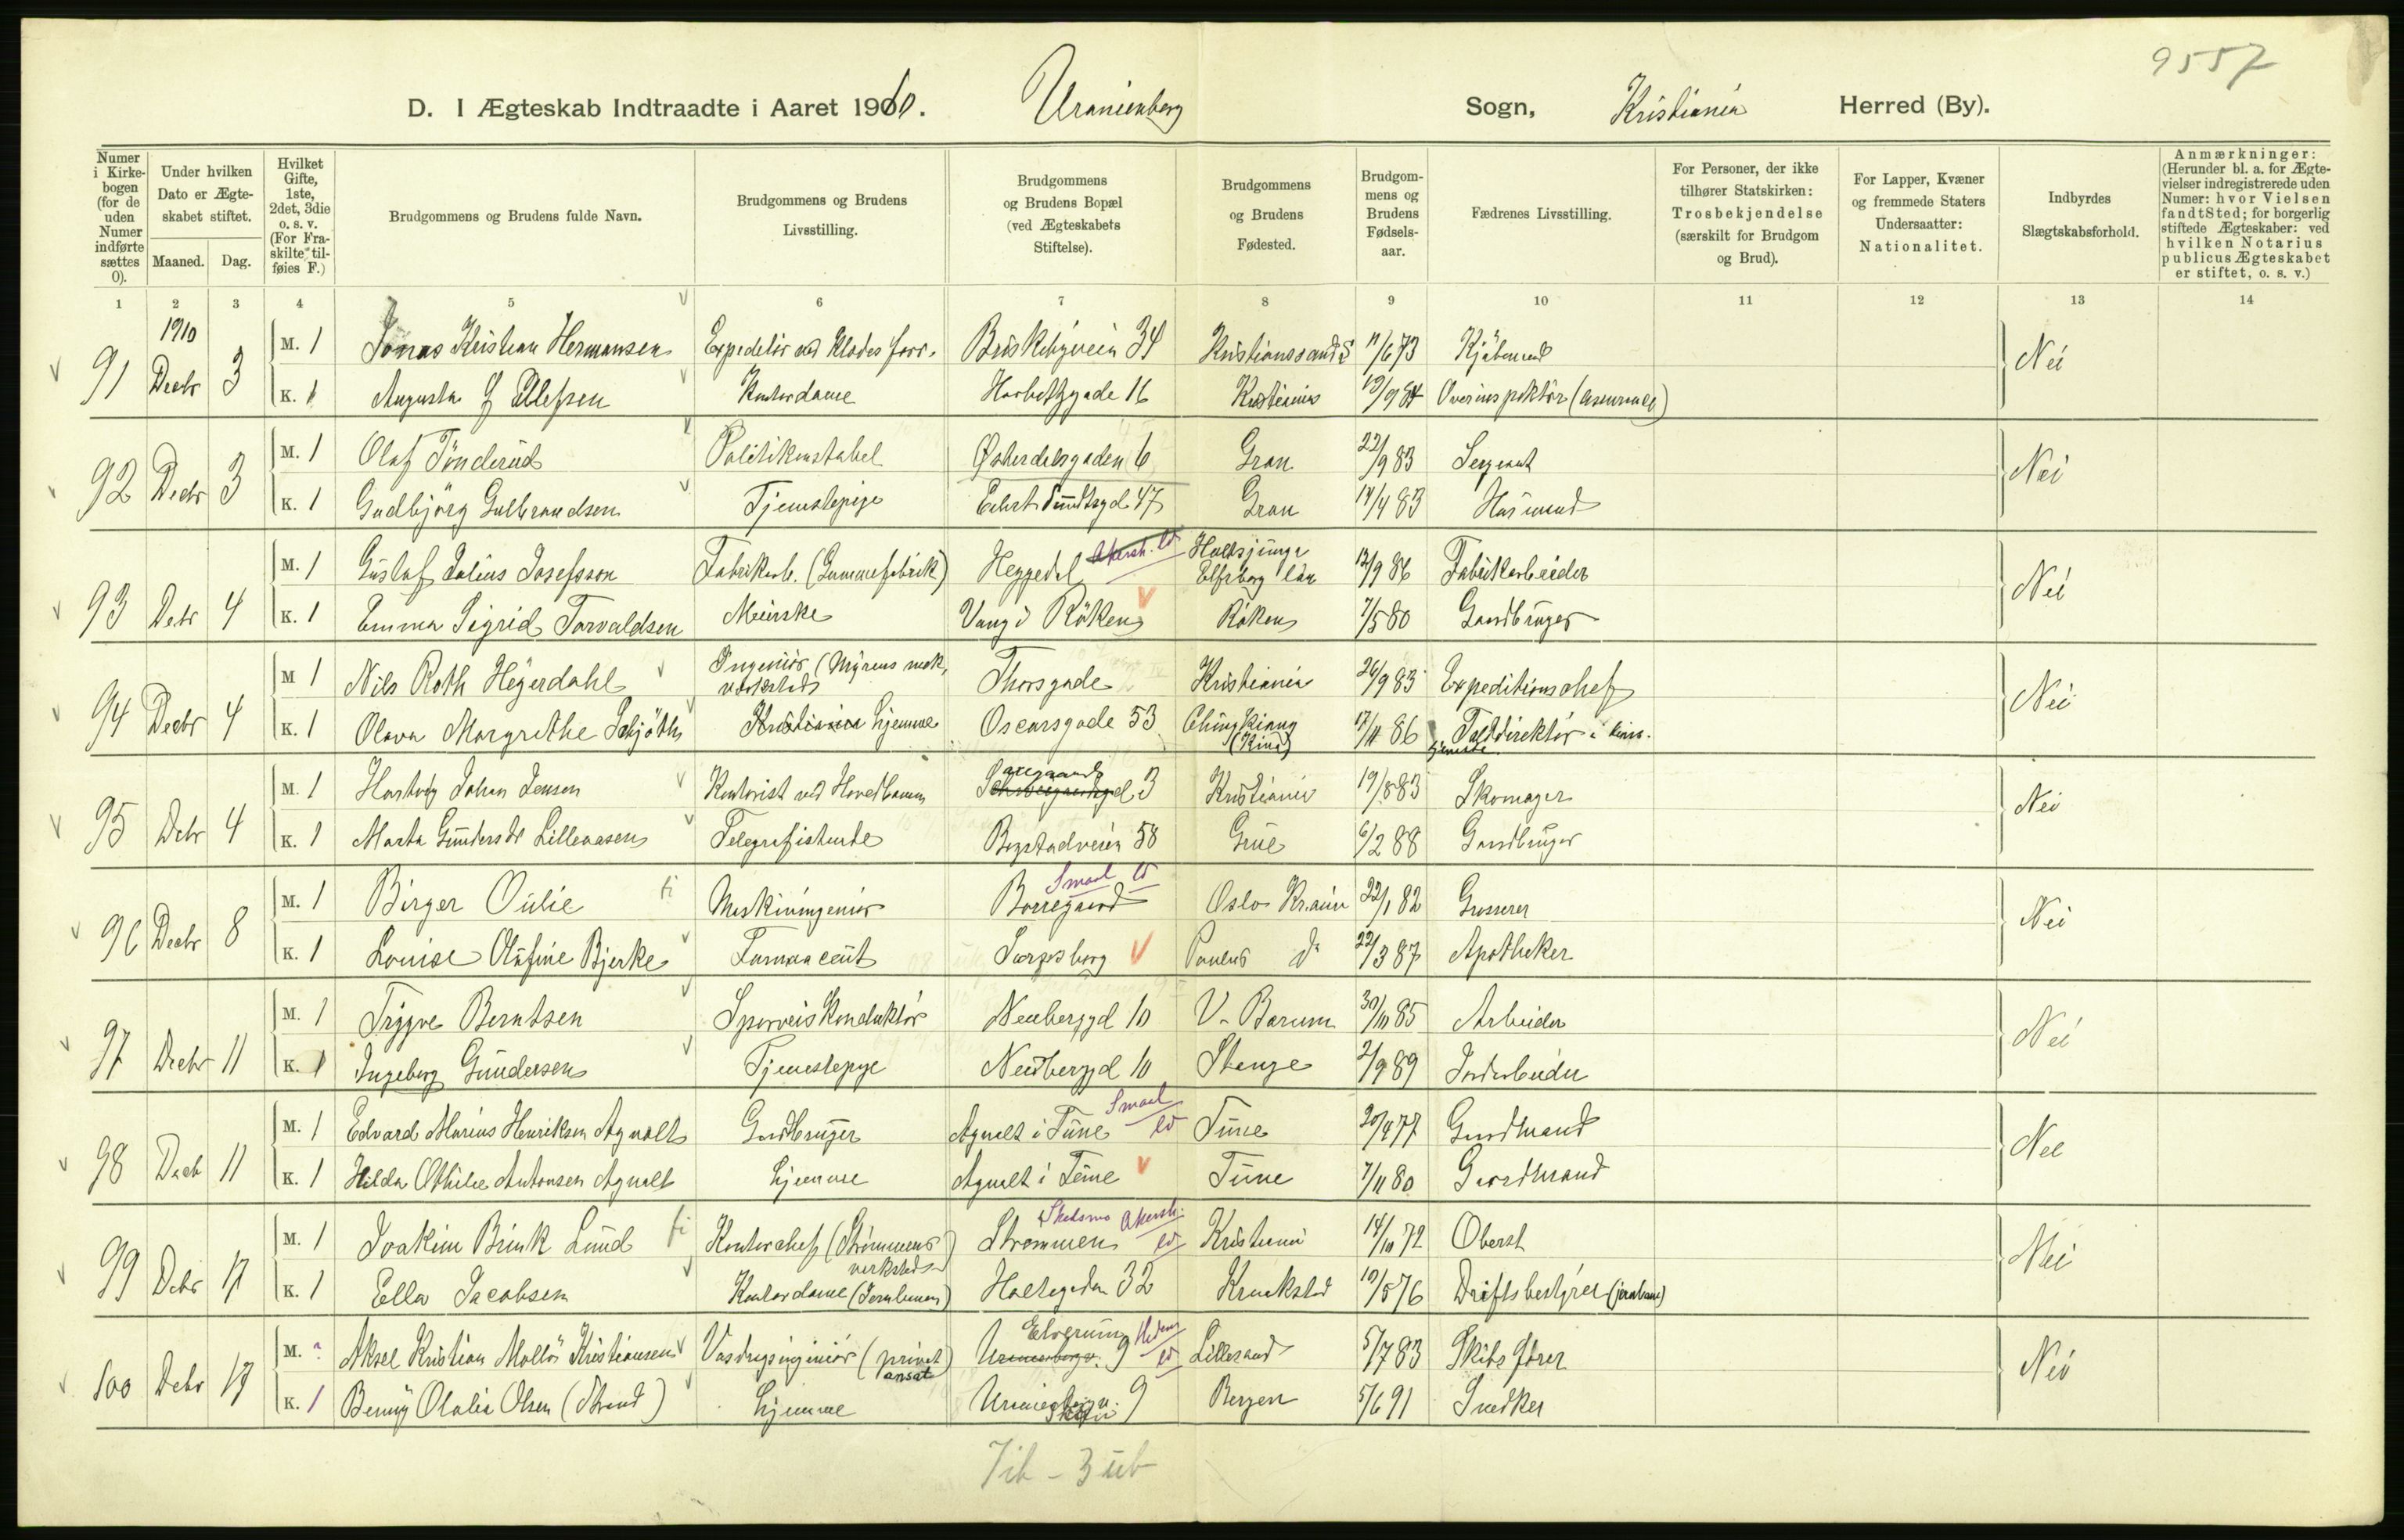 9557
D. I Ægteskab Indtraadte i Aaret 1910. Uranienborg Sogn, Kristiania Herred (By).
Numer i Kirke-bogen (for de uden Numer indførte sættes 0).
Under hvilken Dato er Ægte-skabet stiftet.
Maaned. Dag.
Hvilket Gifte, 1ste, 2det, 3die o. s. v. (For Fra-skilte til-føies F.)
Brudgommens og Brudens fulde Navn.
Brudgommens og Brudens Livsstilling.
Brudgommens og Brudens Bopæl (ved Ægteskabets Stiftelse).
Brudgommens og Brudens Fødested.
Brudgom-mens og Brudens Fødsels-aar.
Fædrenes Livsstilling.
For Personer, der ikke tilhører Statskirken: Trosbekjendelse (særskilt for Brudgom og Brud).
For Lapper, Kvæner og fremmede Staters Undersaatter: Nationalitet.
Indbyrdes Slægtskabsforhold.
Anmærkninger: (Herunder bl. a. for Ægte-vielser indregistrerede uden Numer: hvor Vielsen fandt Sted; for borgerlig stiftede Ægteskaber: ved hvilken Notarius publicus Ægteskabet er stiftet, o. s. v.)
1 2 3 4 5 6 7 8 9 10 11 12 13 14
1910
91 Decbr 3 M. 1 Jonas Kristian Hermansen Expeditør ved Klædes forr. Briskebyveien 34 Kristianssand S 11/6 73 Kjøbmand Nei
K. 1 Augusta Ellefsen Kontordame 16 Kristiania 84 Overinspektør
92 Decbr 3 M. 1 Olaf Tönderud Politikonstabel Østerdalsgaden 6 Gran 22/9 83 Sergeant Nei
K. 1 Gudbjörg Gulbrandsen Tjenestepige Eilert Sundtsgd. 47 Gran 83
93 Debr 4 M. 1 Gustaf Julius Josefsson Fabrikarb. (Gummifabrik) Heggedal Akersh. Holtsjunga Elfsborg län 12/9 86 Fabrikarbeider Nei
K. 1 Emma Sigrid Torvaldsen Meierske Vang i Röken Röken 7/5 80 Gaardbruger
94 Decbr 4 M 1 Nils Roth Heyerdahl Ingeniör (Myrens mek. værksted) Thorsgade Kristiania 26/9 83 Expeditionschef Nei
K. 1 Olava Margrethe Schjöth Kristiania hjemme Oscarsgade 53 Chingkiang (Kina) 17/11 86 Tolddirektør i kines. tjeneste
95 Debr 4 M. 1 Hartvig Johan Jensen Kontorist ved Hovedbanen 3 Kristiania 19/8 83 Skomager Nei
K. 1 Marta Gundersdr Lilleaasen Telegrafistinde Bogstadveien 58 Grue 6/2 88 Gaardbruger
96 Decbr 8 M. 1 Birger Oulie Maskiningeniør Borregaard Smaal. Oslo Kr.ania 22/1 82 Grosserer Nei
K. 1 Louise Olufine Bjerke Farmaceut Sarpsborg Paulus do 22/3 87 Apotheker
97 Decbr 11 M. 1 Trygve Berntsen Sporveiskonduktør Neubergd 10 V. Bærum 30/10 85 Arbeider Nei
K. 1 Ingeborg Gundersen Tjenestepige Neubergd 10 Stange 2/9 89 Jordarbeider
98 Decb 11 M. 1 Edvard Marius Henriksen Agnalt Gaardbruger Agnalt i Tune Smaal. Tune 20/4 77 Gaardmand Nei
K. 1 Hilda Othilie Antonsen Agnalt hjemme Agnalt i Tune Tune 7/11 80 Gaardmand
99 Debr 17 M. 1 Joakim Brink Lund Kontorchef (Strømmens verksted) Strømmen Skedsmo Akersh. Kristiania 14/10 72 Oberst Nei
K. 1 Ella Jacobsen Kontordame (Jernbanen) Holtegaden 32 19/5 76 Driftsbestyrer (jernbane)
100 Debr 17 M. Aksel Kristian Mollö Kristiansen Vasdragsingeniør (privat ansat) Elverum Hedem. Uranienborgv. 9 Lillesand 5/7 83 Skibsfører Nei
K. 1 Benny Olalia Olsen (Strand) hjemme 9 Bergen 5/6 91 Snedker
7 ib - 3 ub